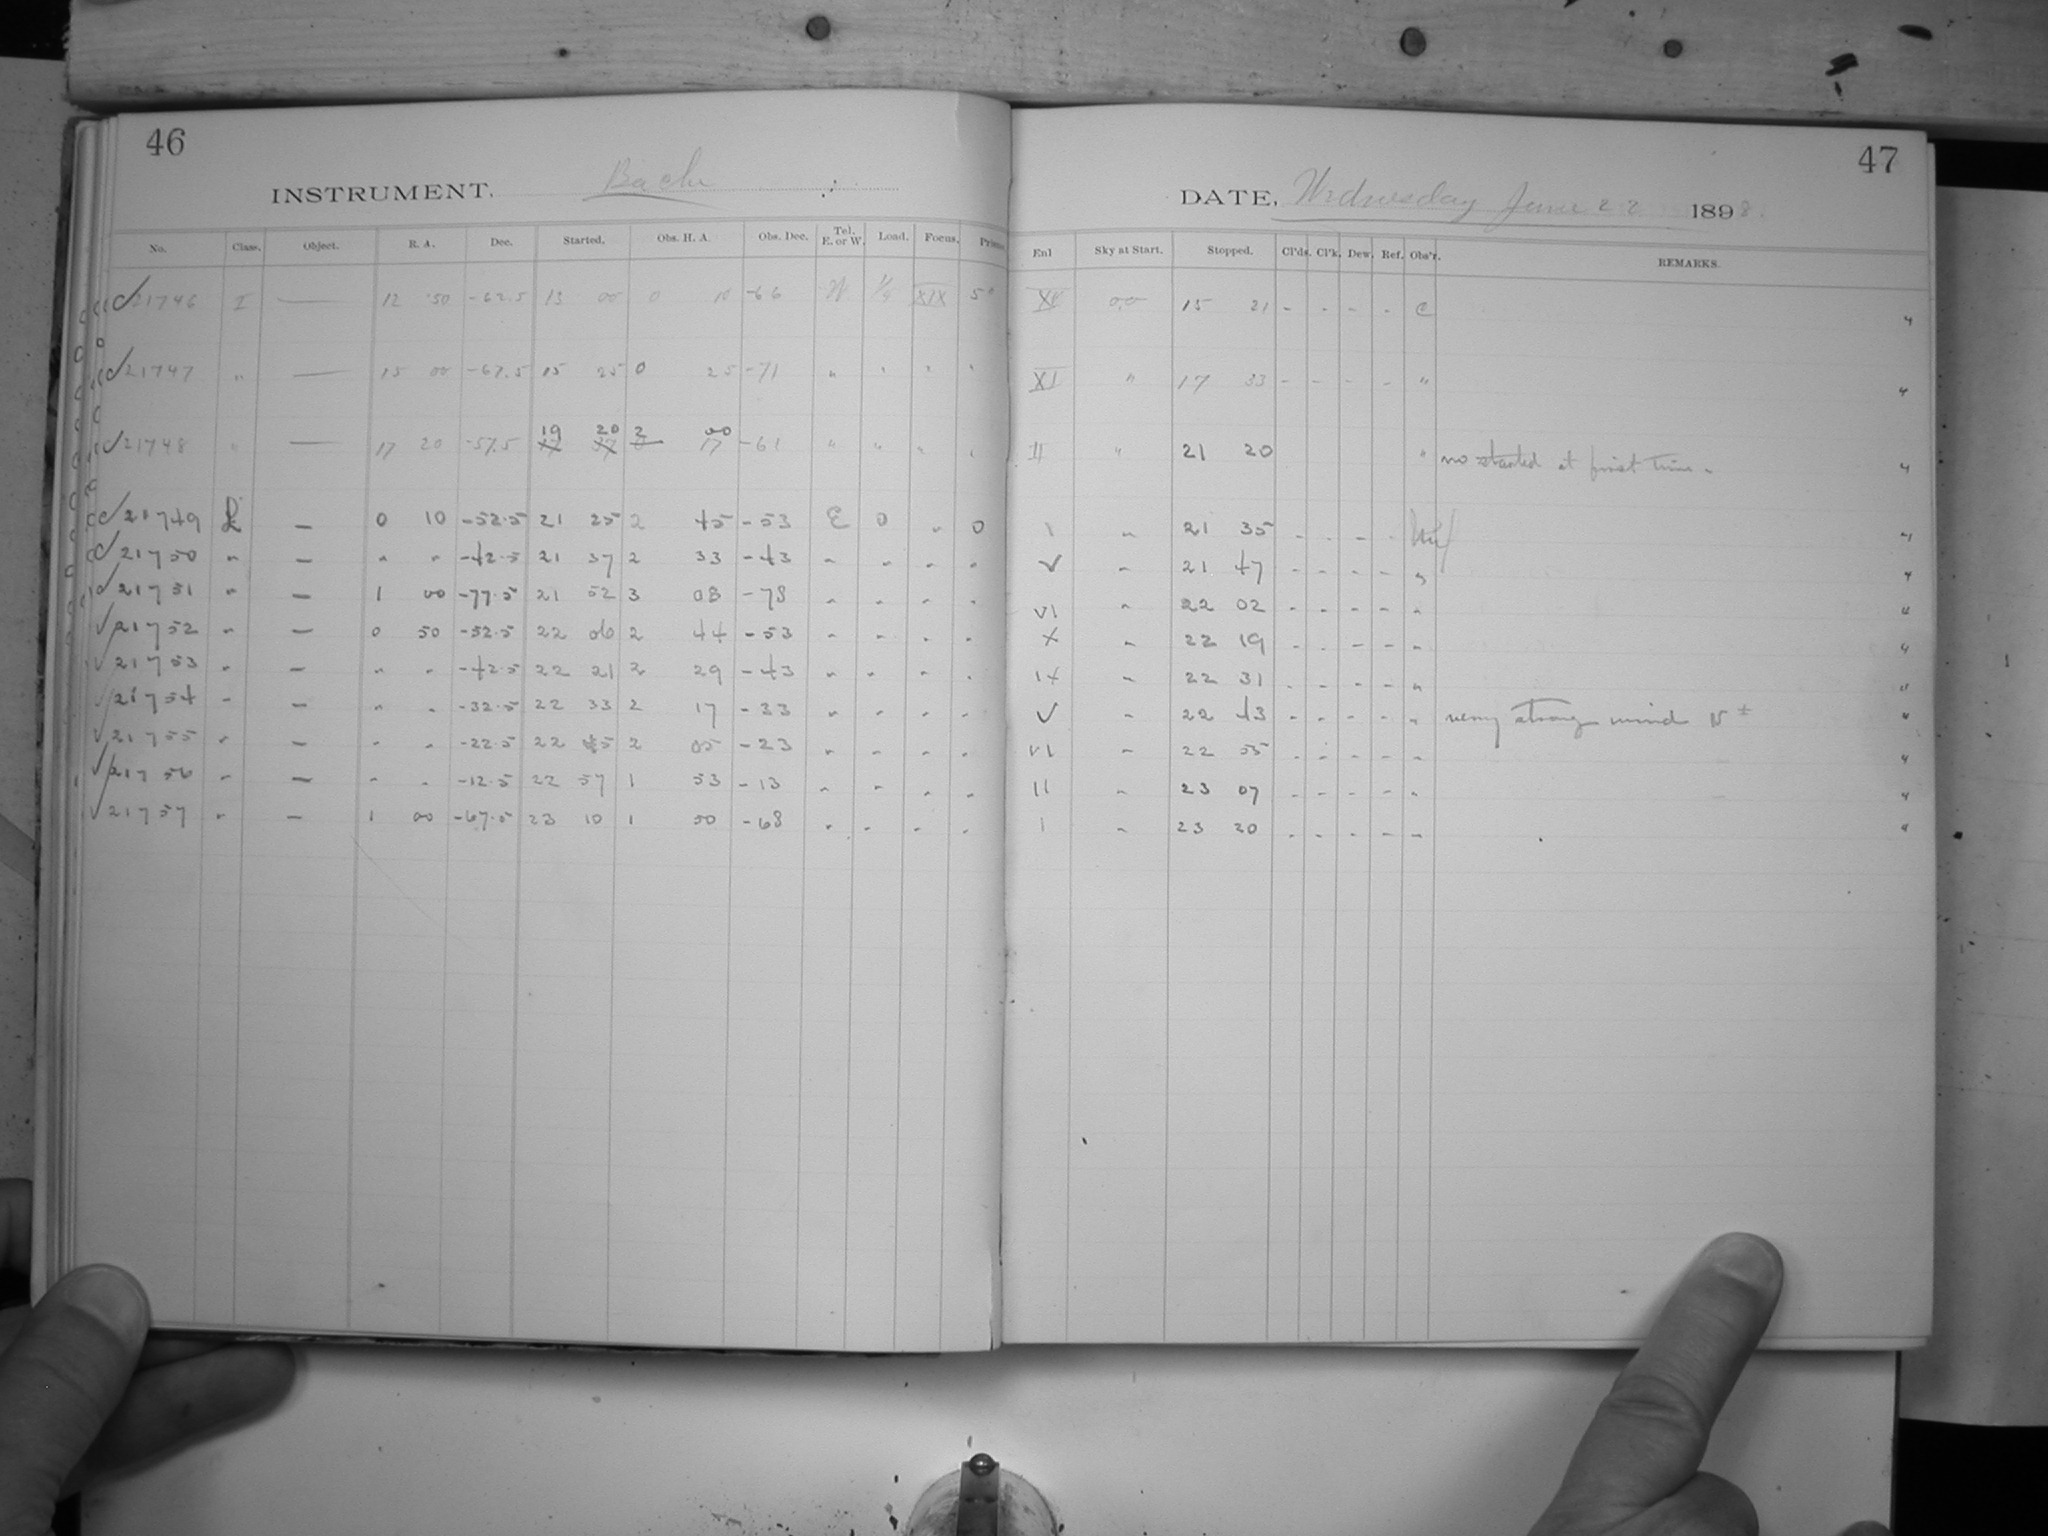 46
INSTRUMENT. Bache
No. Class. Object. R. A. Dec. Started. Obs. H. A. Obs. Dec. Tel. E. or W. Load. Focus. Prism
21746 I — 12 50 -62.5 13 00 0 10 -66 W XIX 5
21747 " — 15 00 -67.5 15 25 0 25 -71 " " " "
19 20 2 00
21748 " — 17 20 -57.5 17 37 0 17 -61 " " " "
21749 L — 0 10 -52.5 21 25 2 45 -53 E 0 " 0
21750 " — " " -42.5 21 37 2 33 -43 " " " "
21751 " — 1 00 -77.5 21 52 3 08 -78 " " " "
21752 " — 0 50 -52.5 22 06 2 44 -53 " " " "
21753 " — " " -42.5 22 21 2 29 -43 " " " "
21754 " — " " -32.5 22 33 2 17 -33 " " " "
21755 " — " " -22.5 22 45 2 05 -23 " " " "
21756 " — " " -12.5 22 57 1 53 -13 " " " "
21757 " — 1 00 -67.5 23 10 1 50 -68 " " " "
47
DATE, Wednesday June 22 1898.
Enl Sky at Start. Stopped. Cl'ds. Cl'k. Dew. Ref. Obs'r. REMARKS.
00 15 21 - - - - C 4
XI " 17 33 - - - - " 4
II " 21 20 " no started at first time. 4
I " 21 35 - - - - 4
V " 21 47 - - - - " 4
VI " 22 02 - - - - " 4
X " 22 19 - - - - " 4
IX " 22 31 - - - - " "
V " 22 43 - - - - " very strong wind N 4
VI " 22 55 - - - - " 4
II " 23 07 - - - - " 4
I " 23 20 - - - - " 4